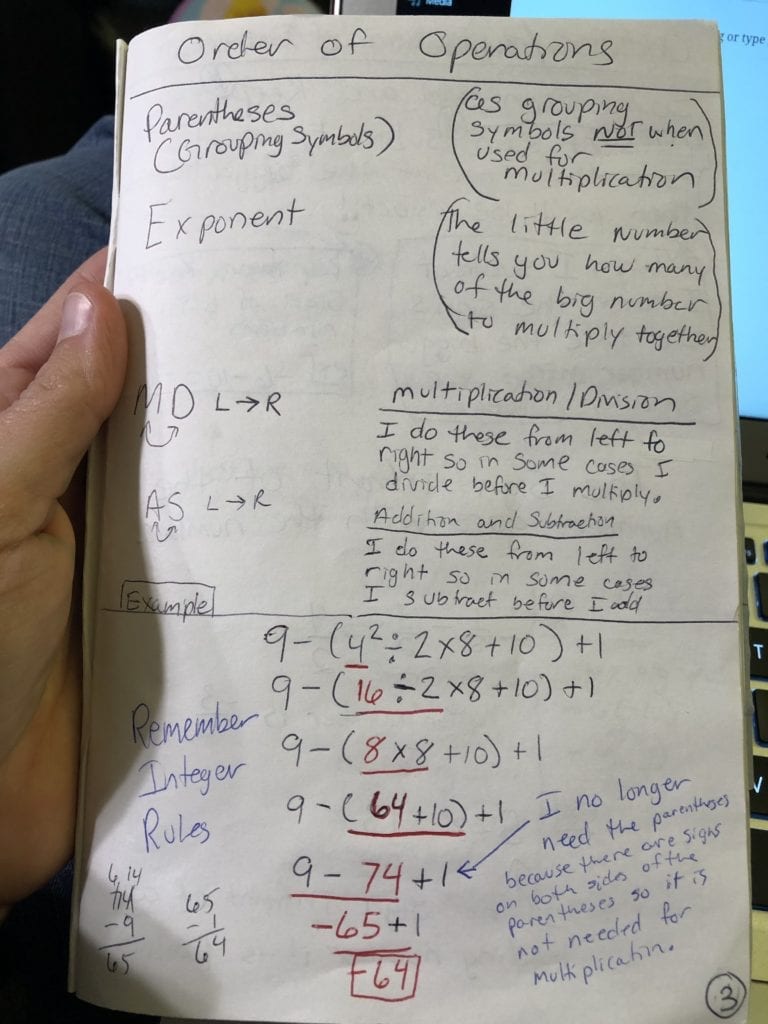 Media
g or type
Order of Operations
Parentheses
(Grouping Symbols)
(as grouping
symbols not when
used for
multiplication)
Exponent
(the little number
tells you how many
of the big number
to multiply together)
MD L → R
multiplication/Division
I do these from left to
right so in some cases I
divide before I multiply.
AS L → R
Addition and Subtraction
I do these from left to
right so in some cases
I subtract before I add
Example
9 - (4² ÷ 2 x 8 + 10) + 1
9 - (16 ÷ 2 x 8 + 10) + 1
9 - (8 x 8 + 10) + 1
9 - (64 + 10) + 1
9 - 74 + 1
-65 + 1
-64
Remember
Integer
Rules
I no longer
need the parentheses
because there are signs
on both sides of the
parentheses so it is
not needed for
multiplication.
6 14
74
- 9
65
65
- 1
64
3
T
V